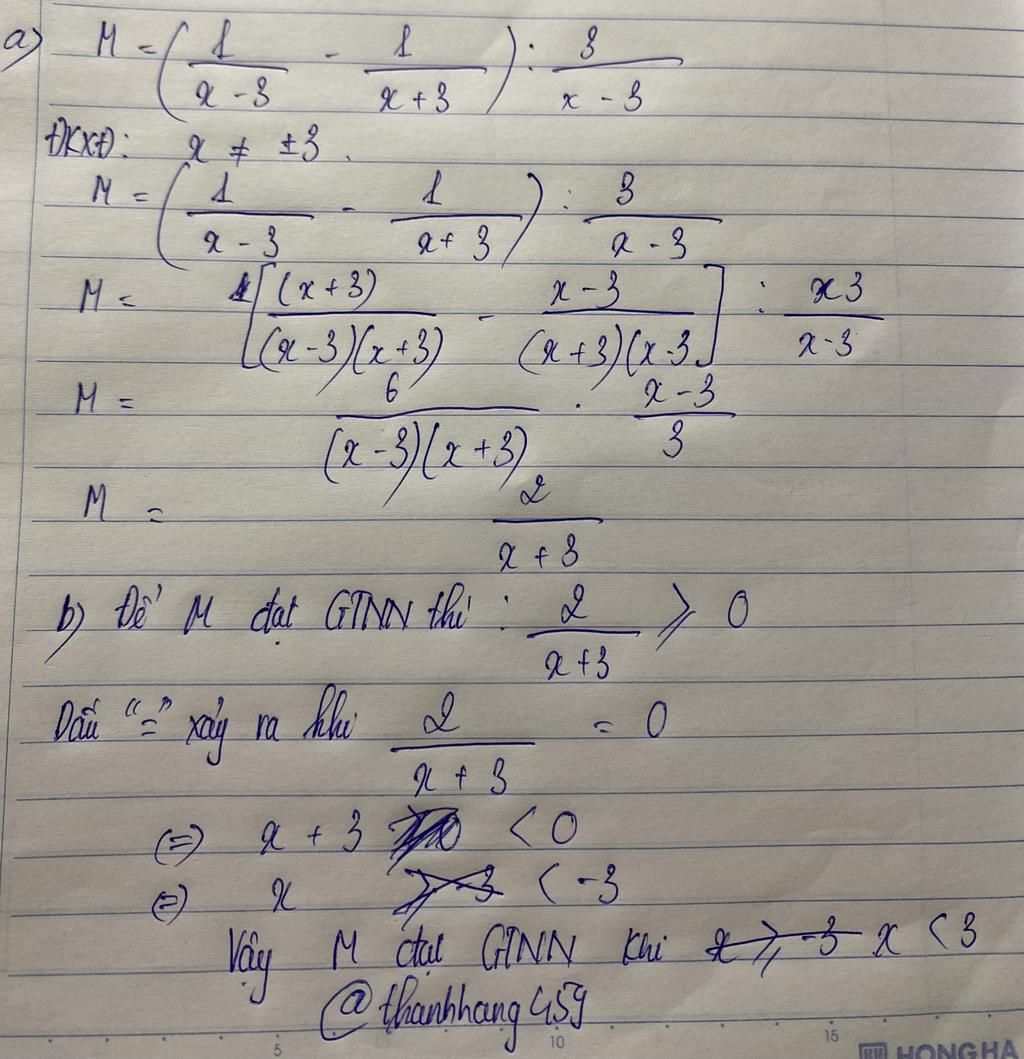 a) M = ( 1/(x - 3) - 1/(x + 3) ) : 3/(x - 3)
ĐKXĐ: x ≠ ±3.
M = ( 1/(x - 3) - 1/(x + 3) ) : 3/(x - 3)
M = [ (x + 3)/((x - 3)(x + 3)) - (x - 3)/((x + 3)(x - 3 ] : 3/(x - 3)
M = 6/((x - 3)(x + 3)) . (x - 3)/3
M = 2/(x + 3)
b) Để M đạt GTNN thì : 2/(x + 3) ⩾ 0
Dấu "=" xảy ra khi 2/(x + 3) = 0
(=) x + 3 < 0
(=) x ⩾ -3 < -3
Vậy M đạt GTNN khi x ⩾ -3 x < 3
@thanhhang459
5 10 15
HONG HA